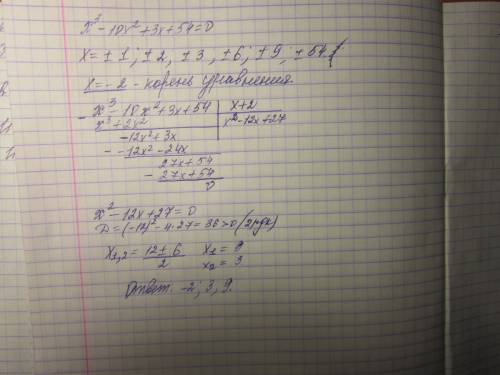 x³ - 10x² + 3x + 54 = 0
x = ± 1; ± 2, ± 3, ± 6; ± 9; ± 54.
x = - 2 - корень уравнения.
- x³ - 10x² + 3x + 54 | x + 2
x³ + 2x² | x² - 12x + 27
- 12x² + 3x
- - 12x² - 24x
27x + 54
- 27x + 54
0
x² - 12x + 27 = 0
D = (-12)² - 4·27 = 36 > 0 (2 рдк)
x₁,₂ = (12 ± 6)/2 x₁ = 9
x₂ = 3
Ответ. -2; 3, 9.